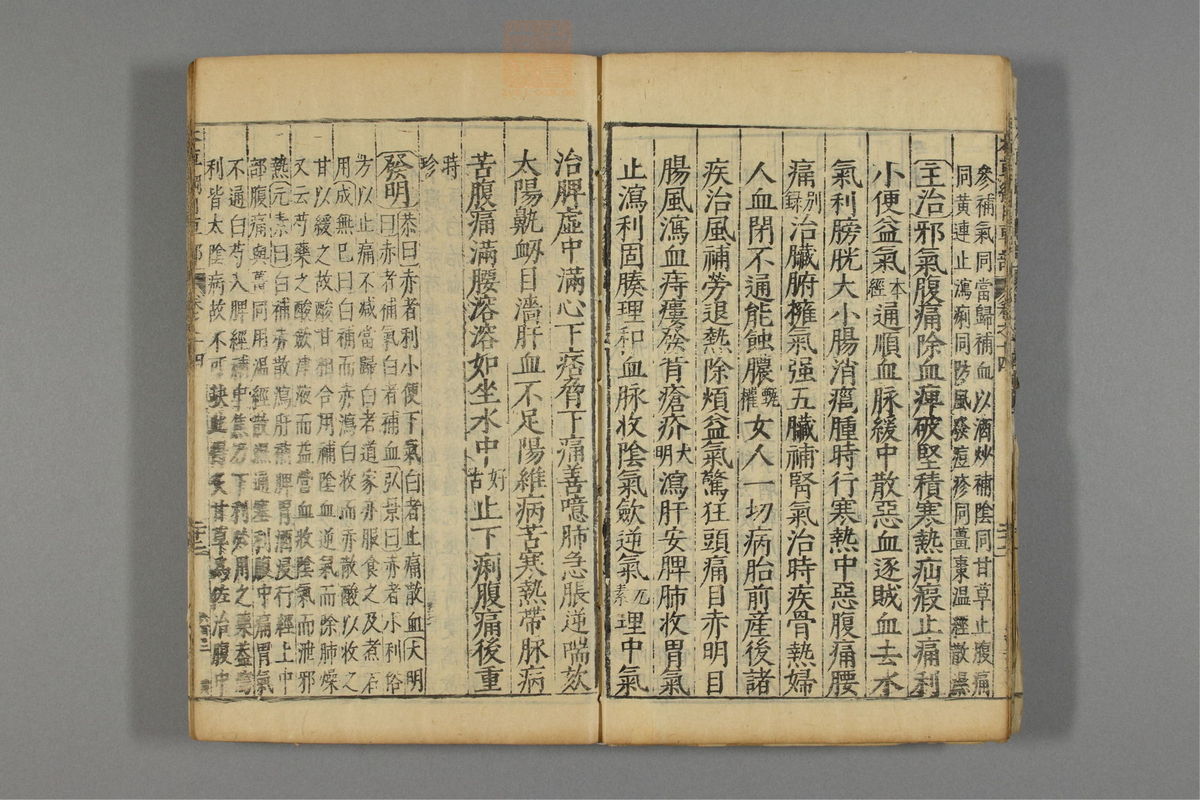 參補氣同當歸補血以酒炒補陰同甘草止腹痛
同黃連止瀉痢同防風發痘疹同薑棗溫經散濕
主治邪氣腹痛除血痺破堅積寒熱疝瘕止痛利
小便益氣本經通順血脉緩中散惡血逐賊血去水
氣利膀胱大小腸消癰腫時行寒熱中惡腹痛腰
痛别録治臟腑擁氣强五臟補腎氣治時疾骨熱婦
人血閉不通能蝕膿甄權女人一切病胎前産後諸
疾治風補勞退熱除煩益氣驚狂頭痛目赤明目
腸風瀉血痔瘻發背瘡疥大明瀉肝安脾肺收胃氣
止瀉利固腠理和血脉收陰氣歛逆氣元素理中氣
治脾虛中滿心下痞脅下痛善噫肺急脹逆喘欬
太陽鼽衂目濇肝血不足陽維病苦寒熱帶脉病
苦腹痛滿腰溶溶如坐水中好古止下痢腹痛後重
時珍
發明恭曰赤者利小便下氣白者止痛散血大明
曰赤者補氣白者補血弘景曰赤者小利俗
方以止痛不減當歸白者道家亦服食之及煮石
用成無已曰白補而赤瀉白收而赤散酸以收之
甘以緩之故酸甘相合用補陰血逆氣而除肺燥
又云芍藥之酸歛津液而益營血收陰氣而泄邪
熱元素曰白補赤散瀉肝補脾胃酒浸行經上中
部腹痛與薑同用溫經散濕通塞利腹中痛胃氣
不通白芍入脾經補中焦乃下利必用之藥盖瀉
利皆太陰病故不可缺此得炙甘草爲佐治腹中